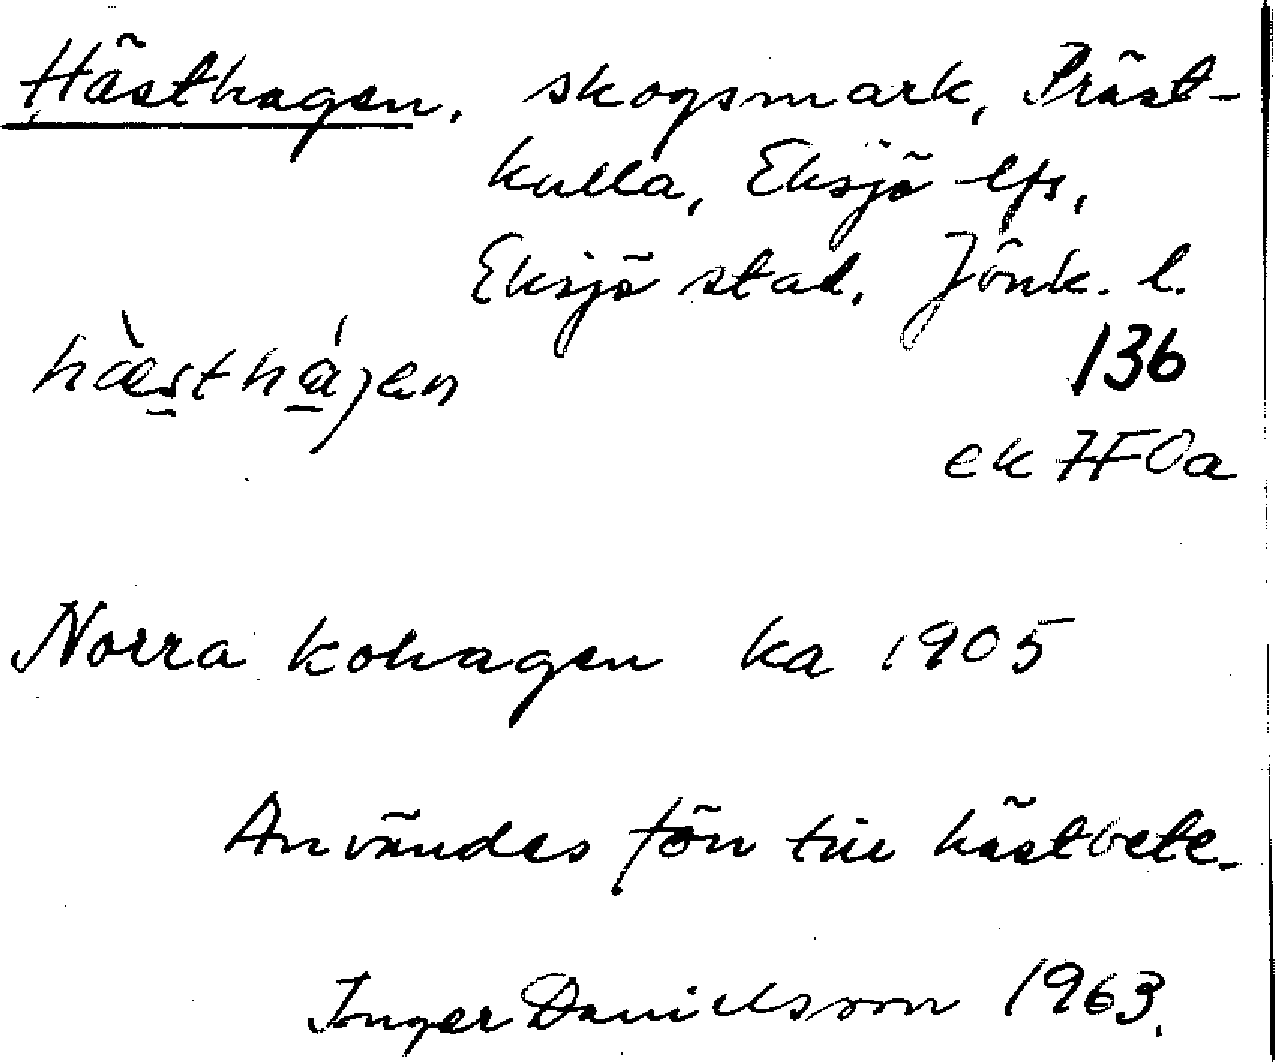 Hästhagen, skogsmark, Präst-
kulla, Eksjö lfs,
Eksjö stad, Jönk. l.
hæ̀sthágen
136
ek 7F0a
Norra kohagen ka 1905
Användes förr till hästbete.
Inger Danielsson 1963.